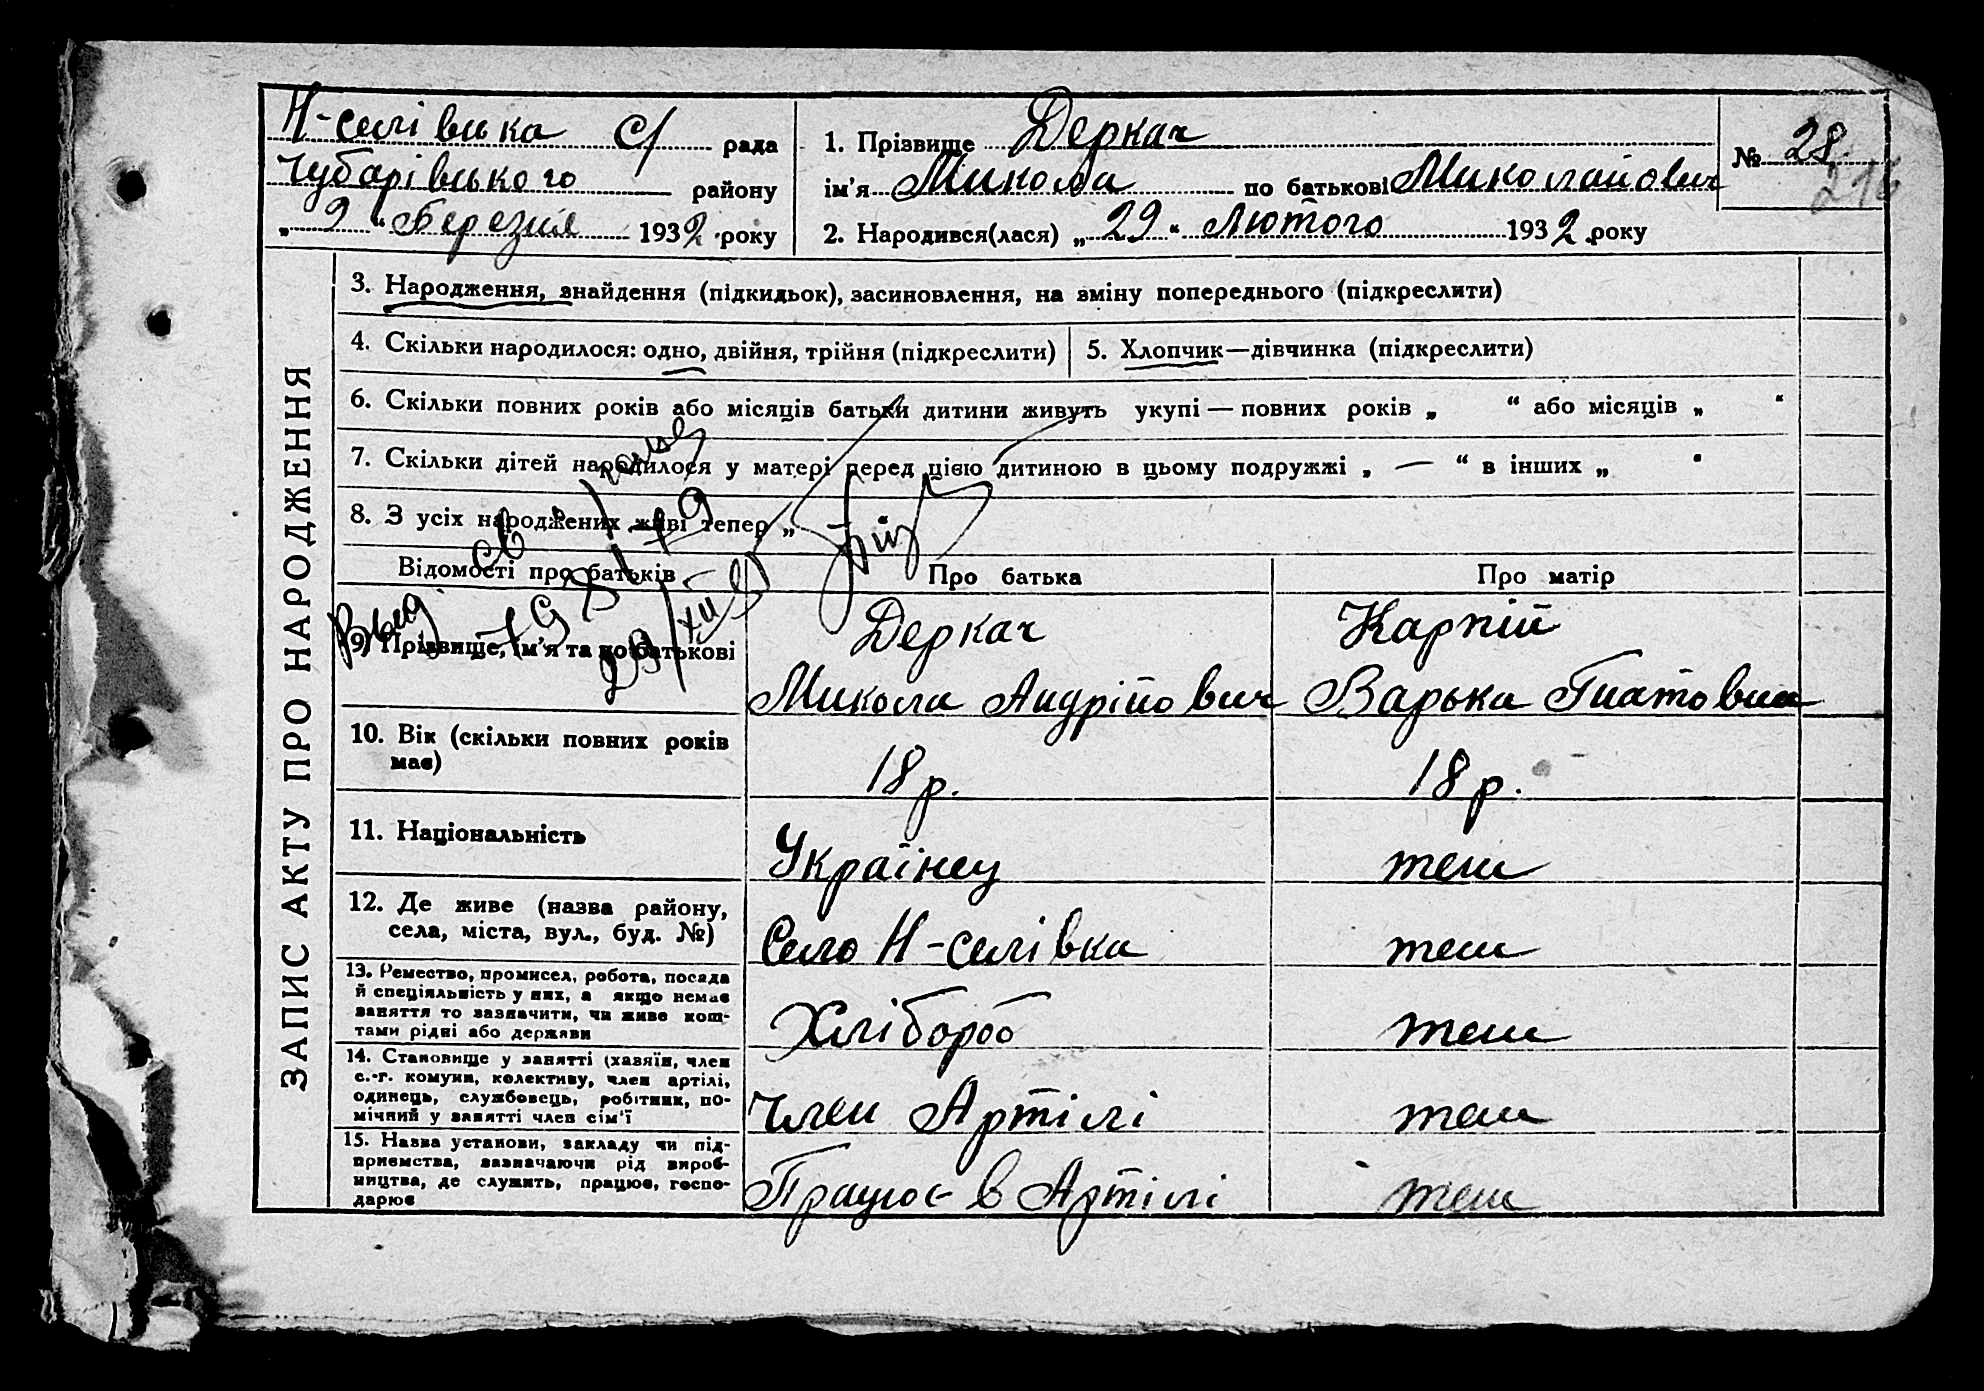 Н-селівська с/ рада
Чубарівського району
„ 9 “ Березня 1932 року
1. Прізвище Деркач
ім'я Микола по батькові Миколайович
2. Народився(лася) „ 29 “ Лютого 1932 року
№ 28
216
ЗАПИС АКТУ ПРО НАРОДЖЕННЯ
3. Народження, знайдення (підкидьок), засиновлення, на зміну попереднього (підкреслити)
4. Скільки народилося: одно, двійня, трійня (підкреслити)
5. Хлопчик—дівчинка (підкреслити)
6. Скільки повних років або місяців батьки дитини живуть укупі — повних років „ “ або місяців „ “
7. Скільки дітей народилося у матері перед цією дитиною в цьому подружжі „ — “ в інших „ “
8. З усіх народжених живі тепер „
Выд. св.
Відомості про батьків
Про батька
Про матір
9. Прізвище, ім'я та по батькові
Деркач
Микола Андрійович
Карпій
Варька Гнатовна
10. Вік (скільки повних років
має)
18 р.
18 р.
11. Національність
Українец
теш
12. Де живе (назва району,
села, міста, вул., буд. №)
Село Н-селівка
теш
13. Ремество, промисел, робота, посада
й спеціяльність у них, а якщо немає
заняття то зазначити, чи живе кош-
тами рідні або держави
Хлібороб
теш
14. Становище у занятті (хазяїн, член
с.-г. комуни, колективу, член артілі,
одинець, службовець, робітник, по-
мічний у занятті член сім'ї
Член Артілі
теш
15. Назва установи, закладу чи під-
приємства, зазначаючи рід вироб-
ництва, де служить, працює, госпо-
дарює
Працює в Артілі
теш